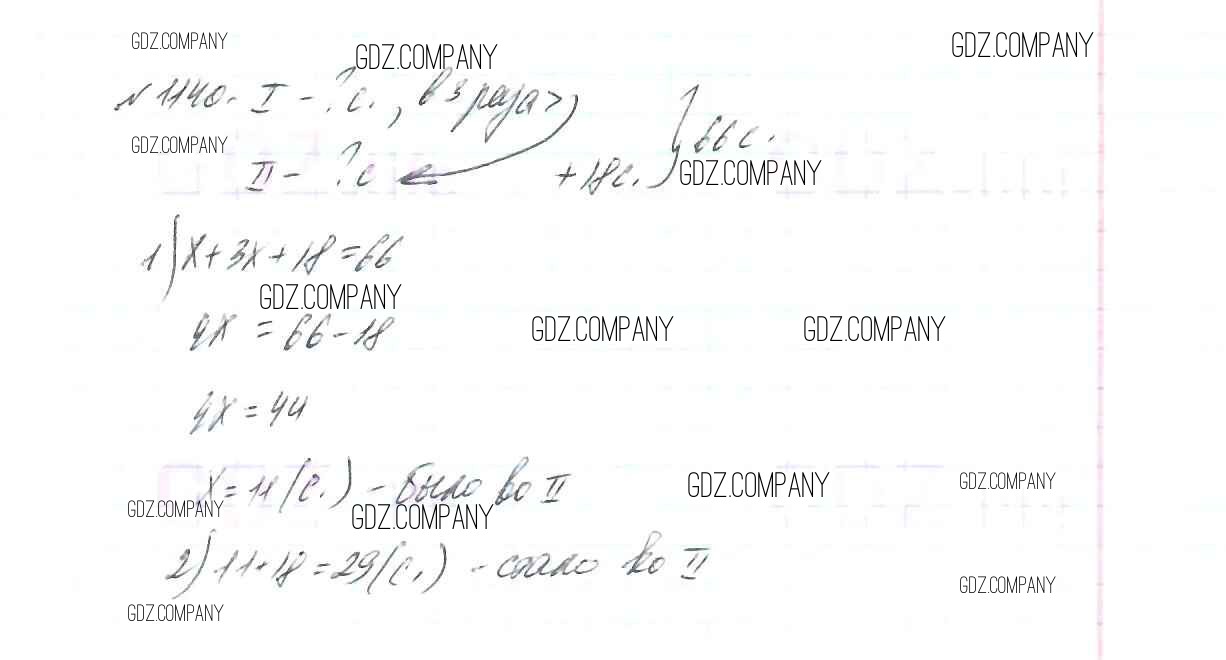 GDZ.COMPANY
GDZ.COMPANY
GDZ.COMPANY
№1140. I - ?с., в 3 раза >
GDZ.COMPANY
II - ?с
+18с.
66с.
GDZ.COMPANY
1) x+3x+18=66
GDZ.COMPANY
4x = 66-18
GDZ.COMPANY
GDZ.COMPANY
4x = 44
x = 11 (с.) - было во II
GDZ.COMPANY
GDZ.COMPANY
GDZ.COMPANY
GDZ.COMPANY
2) 11+18=29(с.) - стало во II
GDZ.COMPANY
GDZ.COMPANY